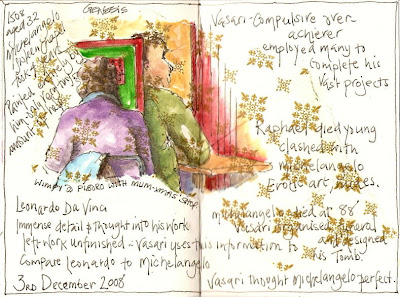 GENESIS
1508
aged 32
Michelangelo
Painted
him
amount
WIMPY'S PUERO WITH MUM-XMAS SHOP
Leonardo Da Vinci
Immense detail & thought into his work
left work unfinished - Vasari uses this information to
Compare Leonardo to Michelangelo
3RD December 2008
Vasari - Compulsive over
achiever
employed many to
complete his
vast projects
Raphael died young
clashed with
michelangelo
Erotic art, nudes.
michelangelo died at 88
Vasari organised funeral
and designed
his tomb.
Vasari thought Michelangelo perfect.